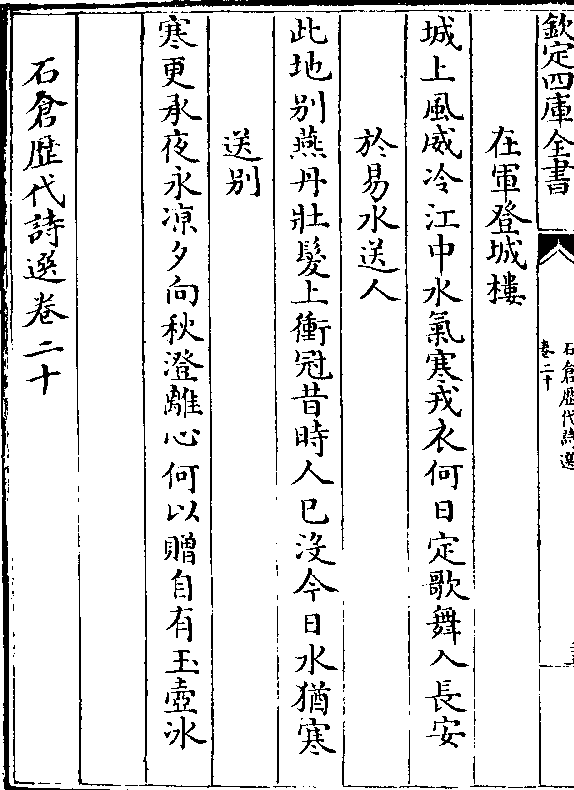 欽定四庫全書
石倉歴代詩選
卷二十
在軍登城樓
城上風威冷江中水氣寒戎衣何日定歌舞入長安
於易水送人
此地別燕丹壯髮上衝冠昔時人已沒今日水猶寒
送別
寒更承夜永凉夕向秋澄離心何以贈自有玉壺冰
石倉歴代詩選卷二十